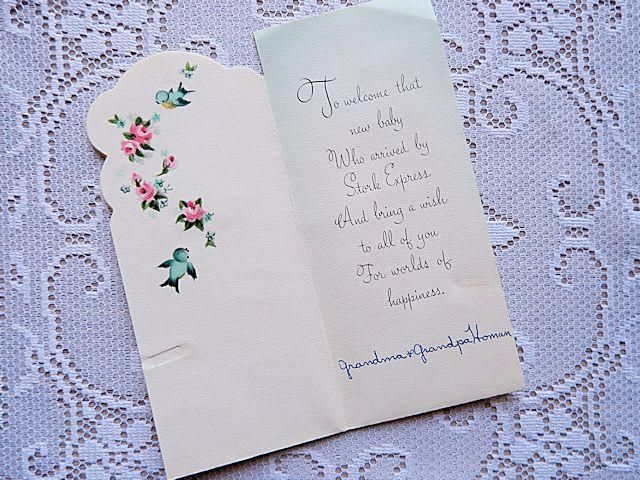 To welcome that
new baby
Who arrived by
Stork Express
And bring a wish
to all of you
For worlds of
happiness.
Grandma & Grandpa Homan